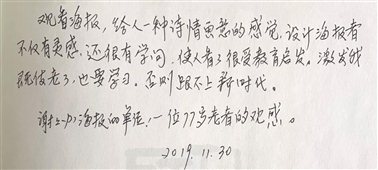 观看海报，给人一种诗情画意的感觉，设计海报者
不仅有灵感，还很有学问，使人看了很受教育启发，激发我
既使老了，也要学习，否则跟不上新时代。
谢海报的单位！一位77岁老者的观感。
2019.11.30